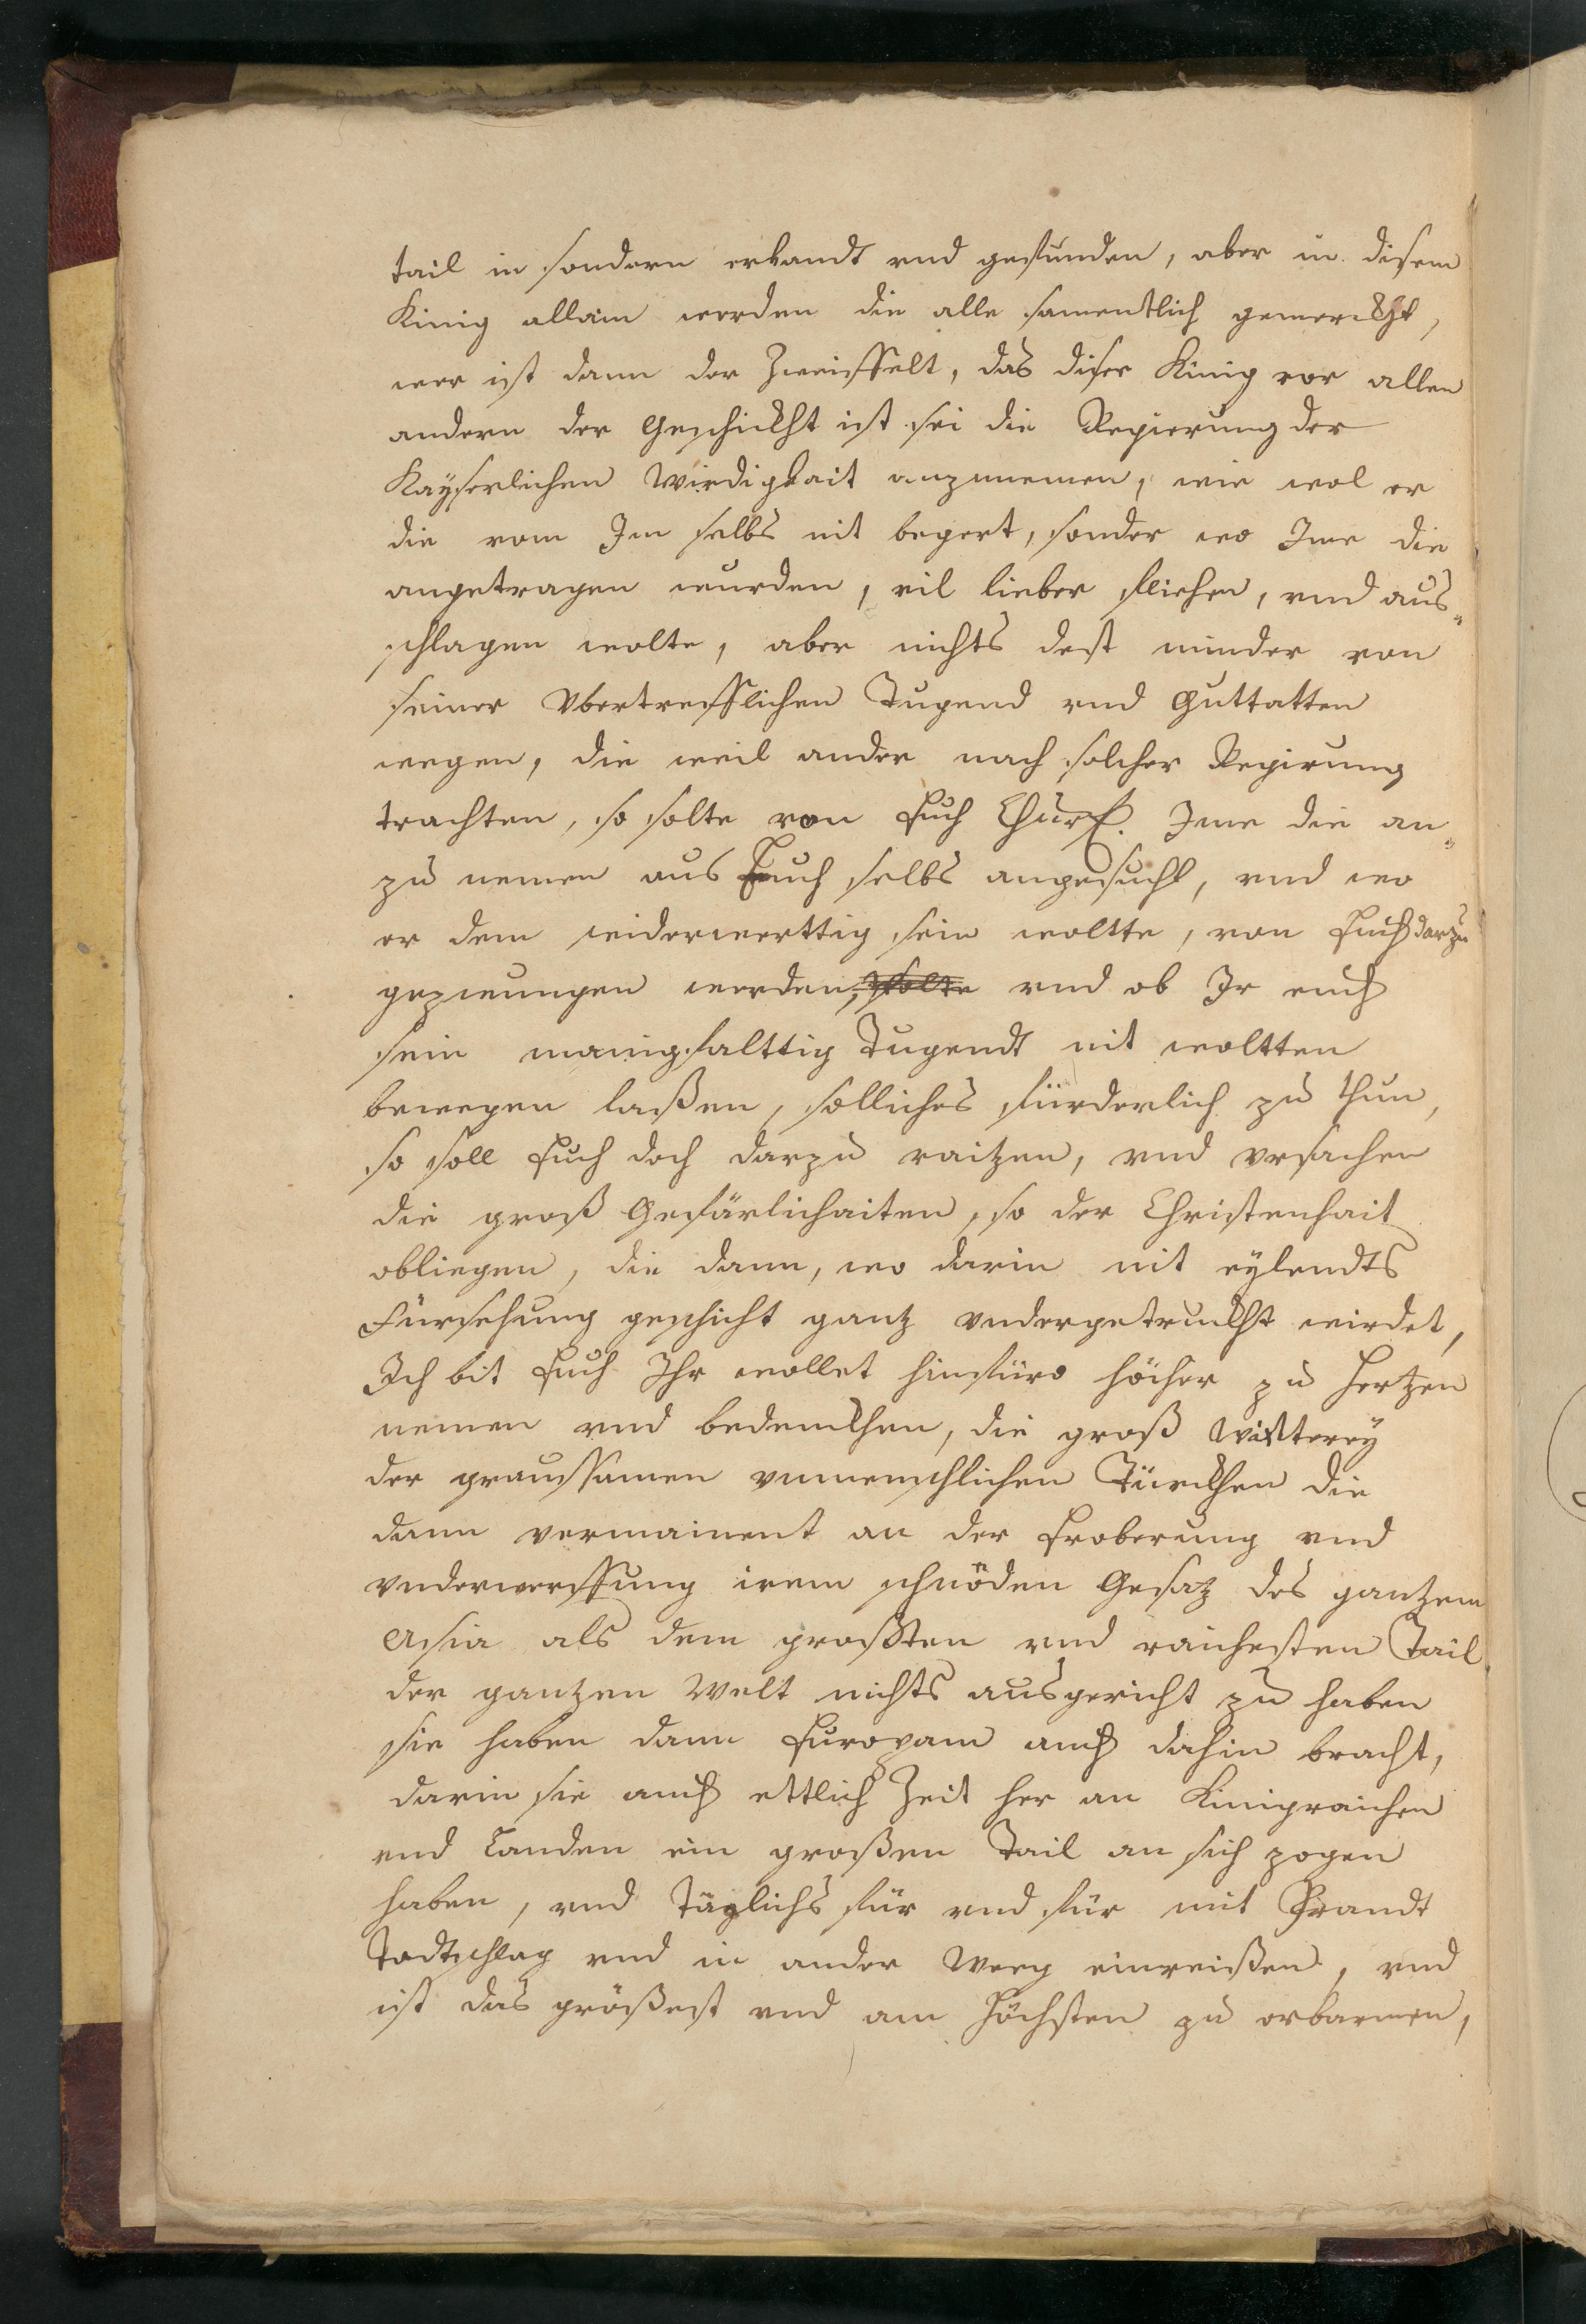 tail in sondern erkandt vnd gefunden, aber in disem
Kinig allain werden die alle samentlich gemerckht,
wer ist dann der Zweiffelt, das diser Kinig vor allen
andern der Geschickht ist sei die Regierung der
Kayserlichen Wirdigkait anzunemen, wie wol er
die vom Im selbs nit begert, sonder wo Ime die
angetragen wurden, vil lieber fliehen, vnd aus„
schlagen wolte, aber nichts dest minder von
seiner Vbertrefflichen Tugend vnd Guttatten
wegen, die weil ander nach solcher Regirung
trachten, so solte von Euch Churf. Ime die an„
zu nemen aus Euch selbs angesucht, vnd wo
er dem widerwerttig sein woltte, von Euch darzu
gezwungen werden, solte vnd ob Ir euch
sein manigfalttig Tugendt nit woltten
bewegen laßen, solliches fürderlich zu thun,
so soll Euch doch darzu raitzen, vnd vrsachen
die groß Gefärlichaiten, so der Christenhait
obliegen, die dann, wo darin nit eylendts
Fürsehung geschicht gantz vndergetruckht wirdet,
Ich bit Euch Ihr wollet hinfüro höcher zu Hertzen
nemen vnd bedenckhen, die groß Witterey
der graussamen vnmenschlichen Türckhen die
dann vermainent an der Eroberung vnd
vnderwerffung irem schnöden Gesatz des gantzem
Asia als dem grosten vnd raichesten Tail
der gantzen Welt nichts ausgericht zu haben
sie haben dann Europam auch dahin bracht,
darin sie auch ettlich Zeit her an Kinigraichen
vnd Landen ein großen Tail an sich zogen
haben, vnd Täglichs für vnd für mit Brandt
Todtschlag vnd in ander Weeg einreißen, vnd
ist das größest vnd am höchsten zu erbarmen,